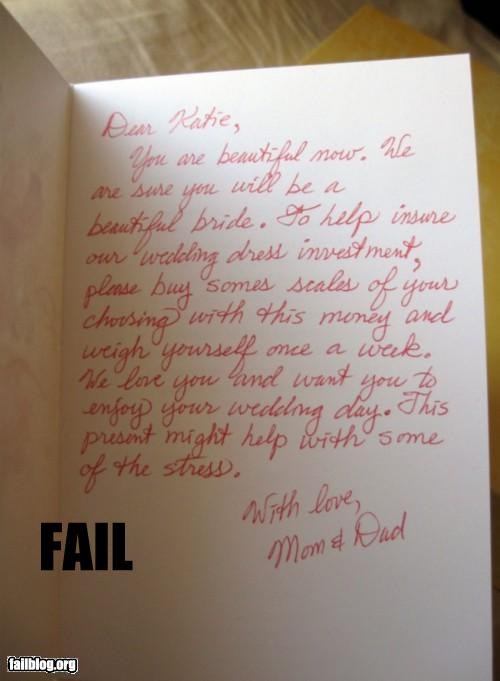 Dear Katie,
You are beautiful now. We
are sure you will be a
beautiful bride. To help insure
our wedding dress investment,
please buy somes scales of your
choosing with this money and
weigh yourself once a week.
We love you and want you to
enjoy your wedding day. This
present might help with some
of the stress.
With love,
Mom & Dad
FAIL
failblog.org